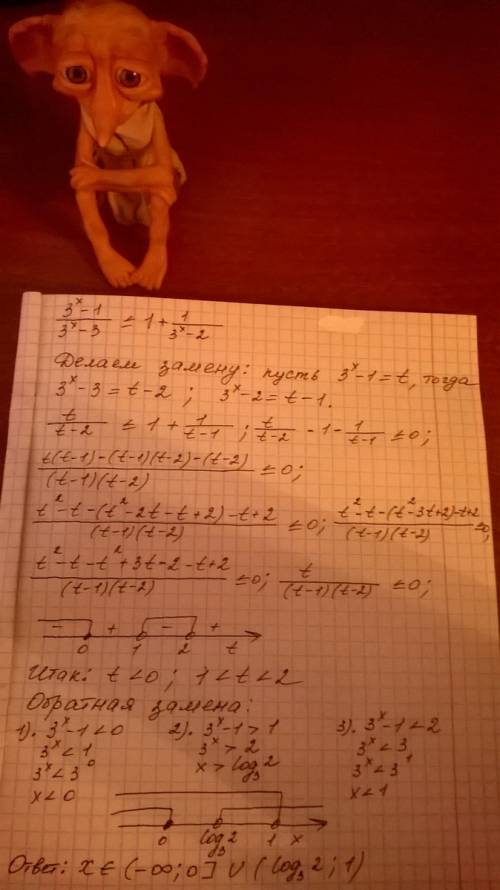 (3ˣ-1)/(3ˣ-3) ≤ 1 + 1/(3ˣ-2)
Делаем замену: пусть 3ˣ-1=t, тогда
3ˣ-3=t-2 ; 3ˣ-2=t-1.
t/(t-2) ≤ 1 + 1/(t-1) ; t/(t-2) - 1 - 1/(t-1) ≤0;
(t(t-1)-(t-1)(t-2)-(t-2))/((t-1)(t-2)) ≤0;
(t²-t-(t²-2t-t+2)-t+2)/((t-1)(t-2)) ≤0; (t²-t-(t²-3t+2)-t+2)/((t-1)(t-2)) ≤0;
(t²-t-t²+3t-2-t+2)/((t-1)(t-2)) ≤0; t/((t-1)(t-2)) ≤0;
- + - +
0 1 2 t
Итак: t<0 ; 1<t<2
Обратная замена:
1). 3ˣ-1<0 2). 3ˣ-1>1 3). 3ˣ-1<2
3ˣ<1 3ˣ>2 3ˣ<3
3ˣ<3⁰ x>log₃2 3ˣ<3¹
x<0 x<1
0 log₃2 1 x
Ответ: x∈(-∞;0] ∪ (log₃2; 1)